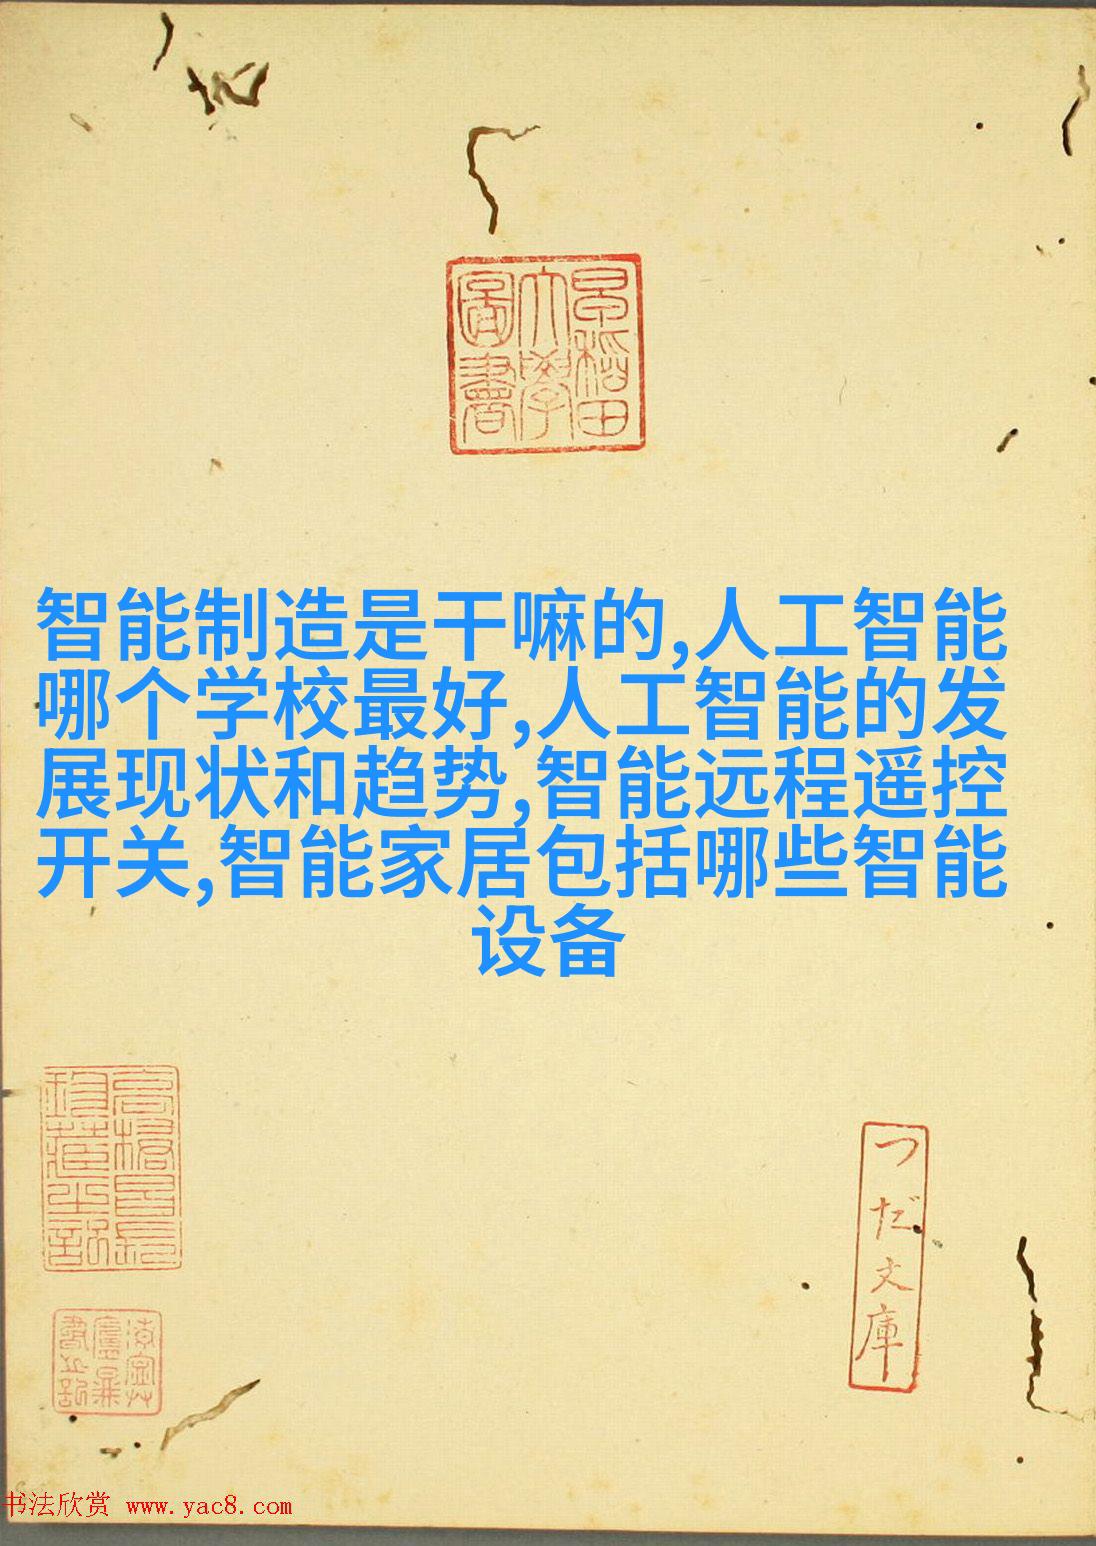 早稲田
大學
圖書
智能制造是干嘛的,人工智能
哪个学校最好,人工智能的发
展现状和趋势,智能远程遥控
开关,智能家居包括哪些智能
设备
つだ文庫
书法欣赏 www.yac8.com